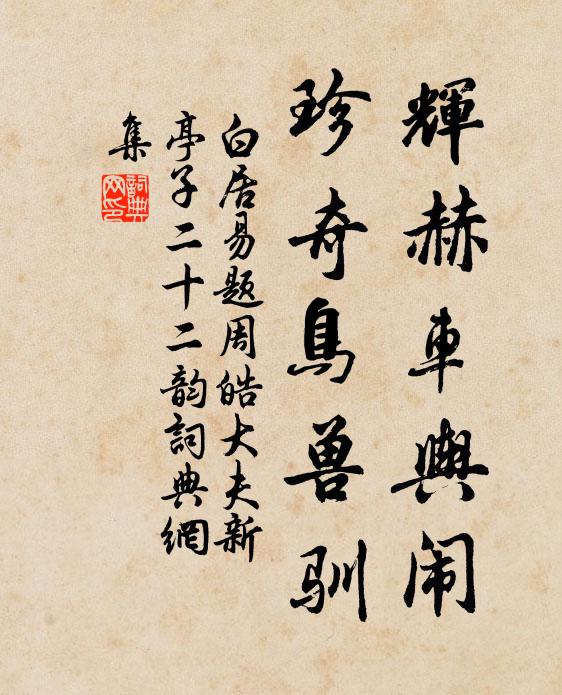 輝赫車輿闹
珍奇鳥兽馴
白居易题周皓大夫新
亭子二十二韵詞典網
集
詞典网印